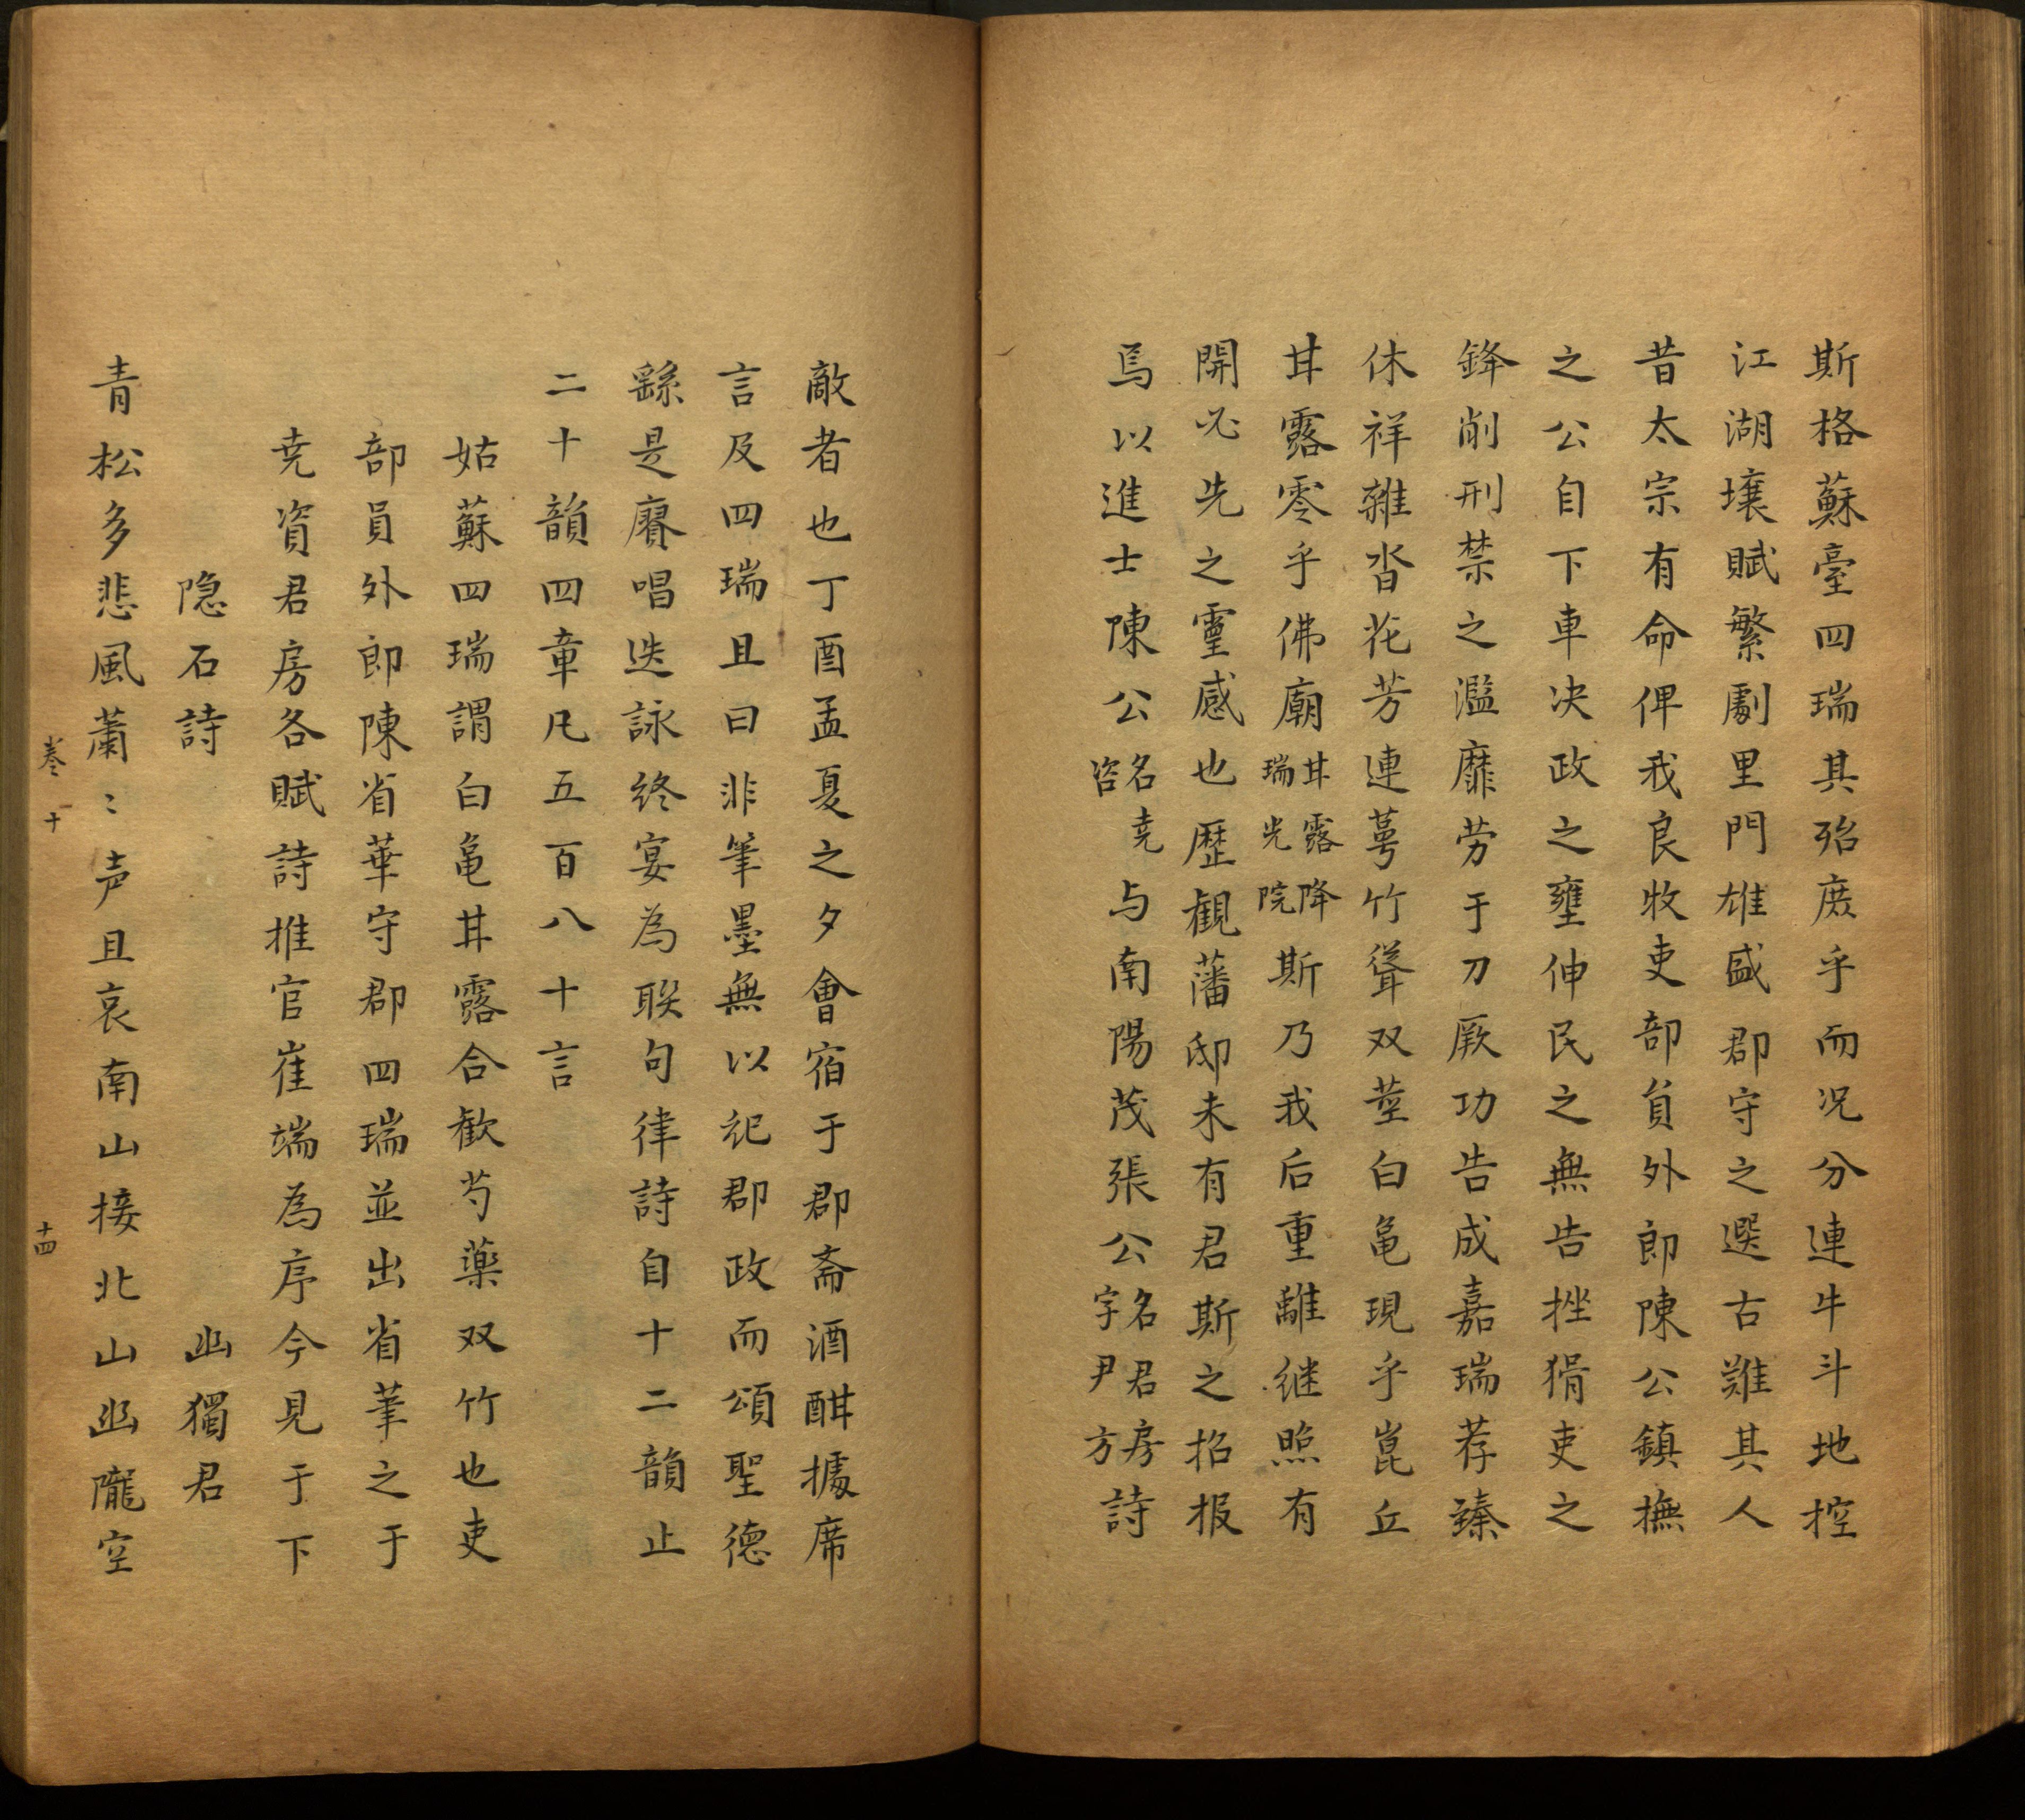 斯格蘇臺四瑞其殆庶乎而况分連牛斗地控
江湖壤賦繁劇里門雄盛郡守之選古難其人
昔太宗有命俾我良牧吏部貟外郎陳公鎮撫
之公自下車决政之壅伸民之無告挫猾吏之
鋒削刑禁之濫靡劳于刀厥功告成嘉瑞荐臻
休祥雜沓花芳連萼竹聳双莖白亀現乎崑丘
甘露零乎佛廟甘露降瑞光院斯乃我后重離継照有
開必先之靈感也歷觀藩邸未有君斯之招报
焉以進士陳公名尭咨与南陽茂張公名君房字尹方詩
敵者也丁酉孟夏之夕會宿于郡斋酒酣據席
言及四瑞且曰非筆墨無以記郡政而頌聖德
繇是賡唱迭詠终宴為聫句律詩自十二韻止
二十韻四章凡五百八十言
姑蘇四瑞謂白亀甘露合歓芍藥双竹也吏
部員外郎陳省華守郡四瑞並出省華之于
尭資君房各賦詩推官崔端為序今見于下
隐石詩　幽獨君
青松多悲風蕭〻声且哀南山接北山幽隴空
卷十　十四